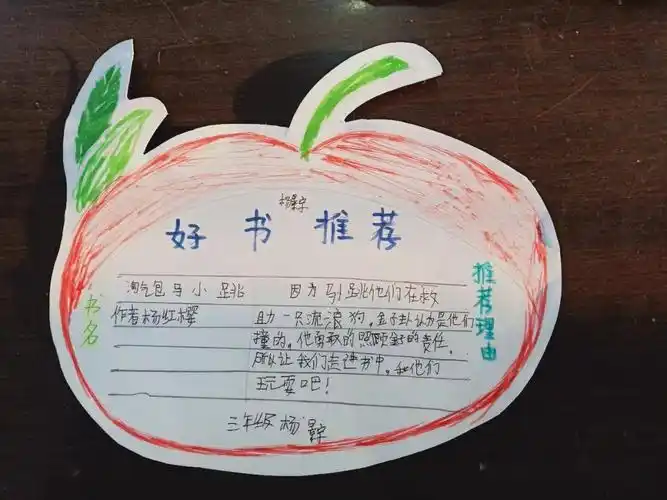 好书推荐
书名
推荐理由
淘气包马小跳
作者杨红樱
因为马小跳他们在救
助一只流浪狗,金子卦认为是他们
撞的,他勇敢的照顾
的责任,
所以让我们走进书中,和他们
玩耍吧!
三年级 杨